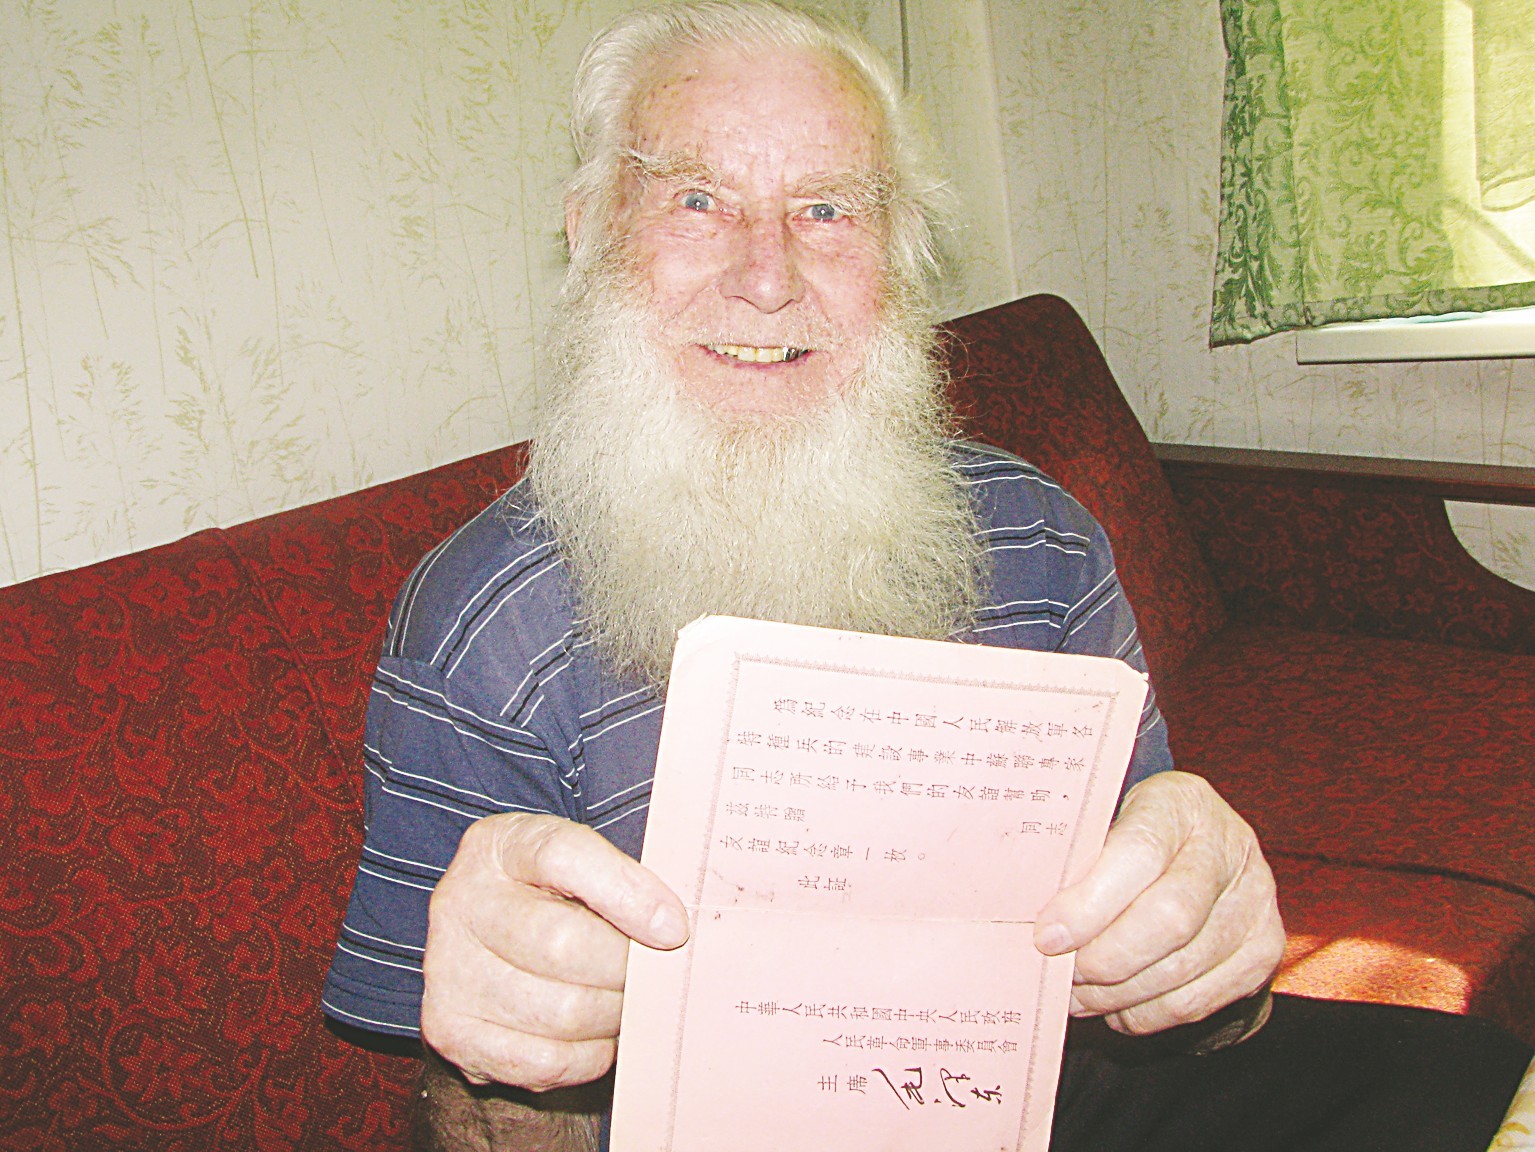 為紀念在中國人民解放軍各
特種兵的建設事業中蘇聯專家
同志所給予我們的友誼幫助，
茲特贈 同志
友誼紀念章一枚。
此証
中華人民共和國中央人民政府
人民革命軍事委員會
主席 毛澤东